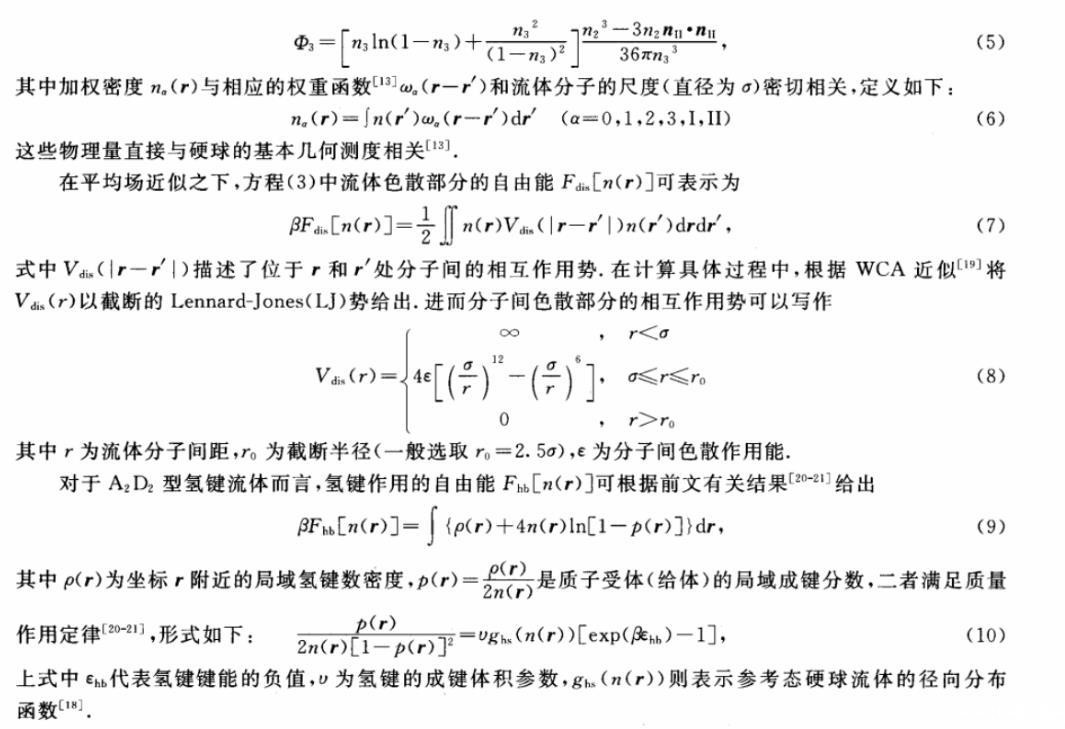 Φ₃=[n₃ln(1−n₃)+n₃²/(1−n₃)²](n₂³−3n₂n_II•n_II)/(36πn₃³), (5)
其中加权密度 nₐ(r)与相应的权重函数[13]ωₐ(r−r′)和流体分子的尺度(直径为σ)密切相关,定义如下:
nₐ(r)=∫n(r′)ωₐ(r−r′)dr′ (α=0,1,2,3,I,II) (6)
这些物理量直接与硬球的基本几何测度相关[13].
在平均场近似之下,方程(3)中流体色散部分的自由能 F_dis[n(r)]可表示为
βF_dis[n(r)]=1/2∬n(r)V_dis(|r−r′|)n(r′)drdr′, (7)
式中 V_dis(|r−r′|)描述了位于 r 和 r′处分子间的相互作用势.在计算具体过程中,根据 WCA 近似[19]将
V_dis(r)以截断的 Lennard-Jones(LJ)势给出.进而分子间色散部分的相互作用势可以写作
∞ , r<σ
V_dis(r)={4ε[(σ/r)¹²−(σ/r)⁶], σ≤r≤r₀ (8)
0 , r>r₀
其中 r 为流体分子间距,r₀ 为截断半径(一般选取 r₀=2.5σ),ε 为分子间色散作用能.
对于 A₂D₂ 型氢键流体而言,氢键作用的自由能 F_hb[n(r)]可根据前文有关结果[20-21]给出
βF_hb[n(r)]=∫{ρ(r)+4n(r)ln[1−p(r)]}dr, (9)
其中 ρ(r)为坐标 r 附近的局域氢键数密度,p(r)=ρ(r)/2n(r)是质子受体(给体)的局域成键分数,二者满足质量
作用定律[20-21],形式如下: p(r)/2n(r)[1−p(r)]²=υg_hs(n(r))[exp(βε_hb)−1], (10)
上式中 ε_hb代表氢键键能的负值,υ 为氢键的成键体积参数,g_hs(n(r))则表示参考态硬球流体的径向分布
函数[18].